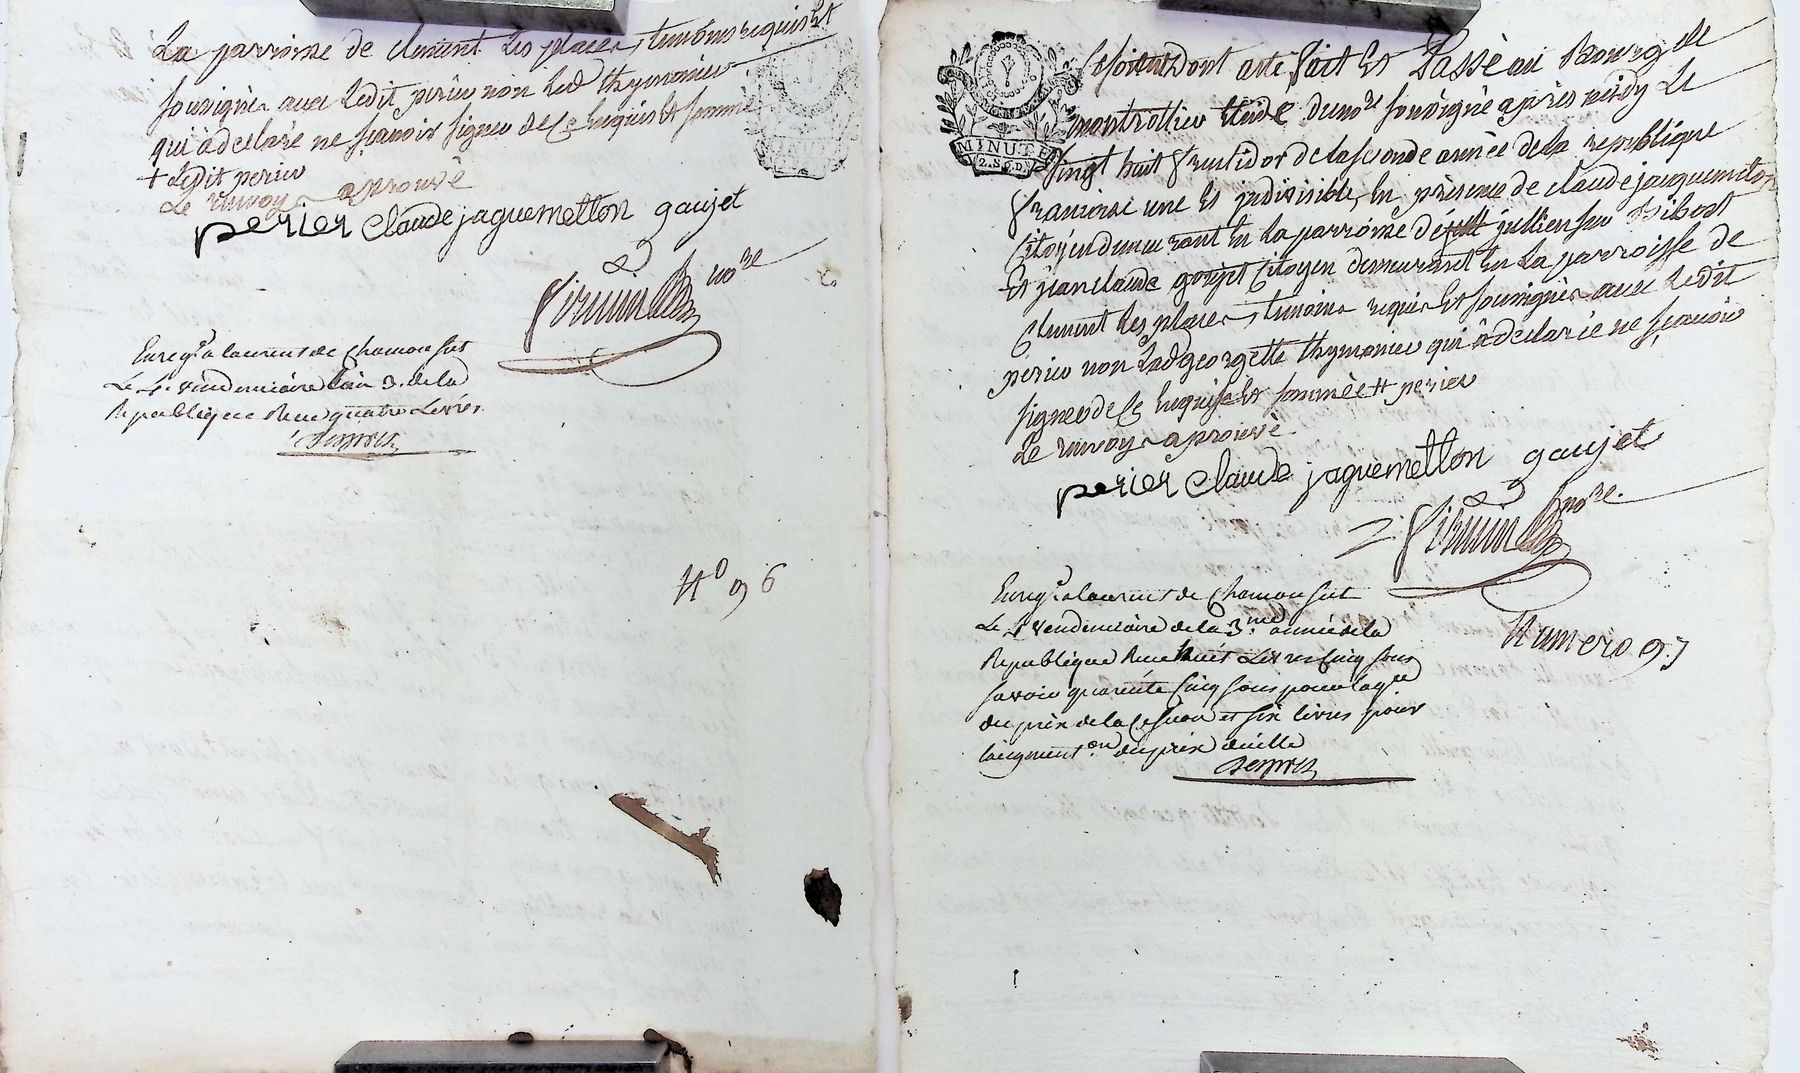 La parroisse de clement les places, temoins requis et
soussignés avec ledit perier non lad thymonier
qui a declaré ne scavoir signer de ce enquis et sommé
+ ledit perier
Le renvoy aprouvé
perier Claude jaquemetton gaujet
nore
Enregé a laurent de Chamousset
Le 4. vendemiaire l'an 3. de la
Republique Recu quatre Livres
No 96
MINUTE
2. S. 6. D.
dont acte fait et Passé au Bourg de
montrottier Etude du nore soussigné apres midy Le
vingt huit fructidor de la seconde année de la republique
francoise une et indivisible, En présence de claude jacquemetton
Citoyen demeurant En la parroisse de jullien sur Bibost
Et jean claude goujet Citoyen demeurant En La parroisse de
Clement les places, temoins requis Et soussignés avec Ledit
perier non Lad georgette thymonier qui a declarée ne scavoir
signer de ce enquise et sommée # perier
Le renvoy aprouvé
perier Claude jaquemetton gaujet
nore.
Enregé a laurent de Chamousset
Le 4 vendemiaire de la 3.me année de la
Republique Recu huit Livres Cinq sous
savoir quarente Cinq sous pour
du prix de la Cession et six livres pour
l'augmenton du prix d'icelle
Numero 97